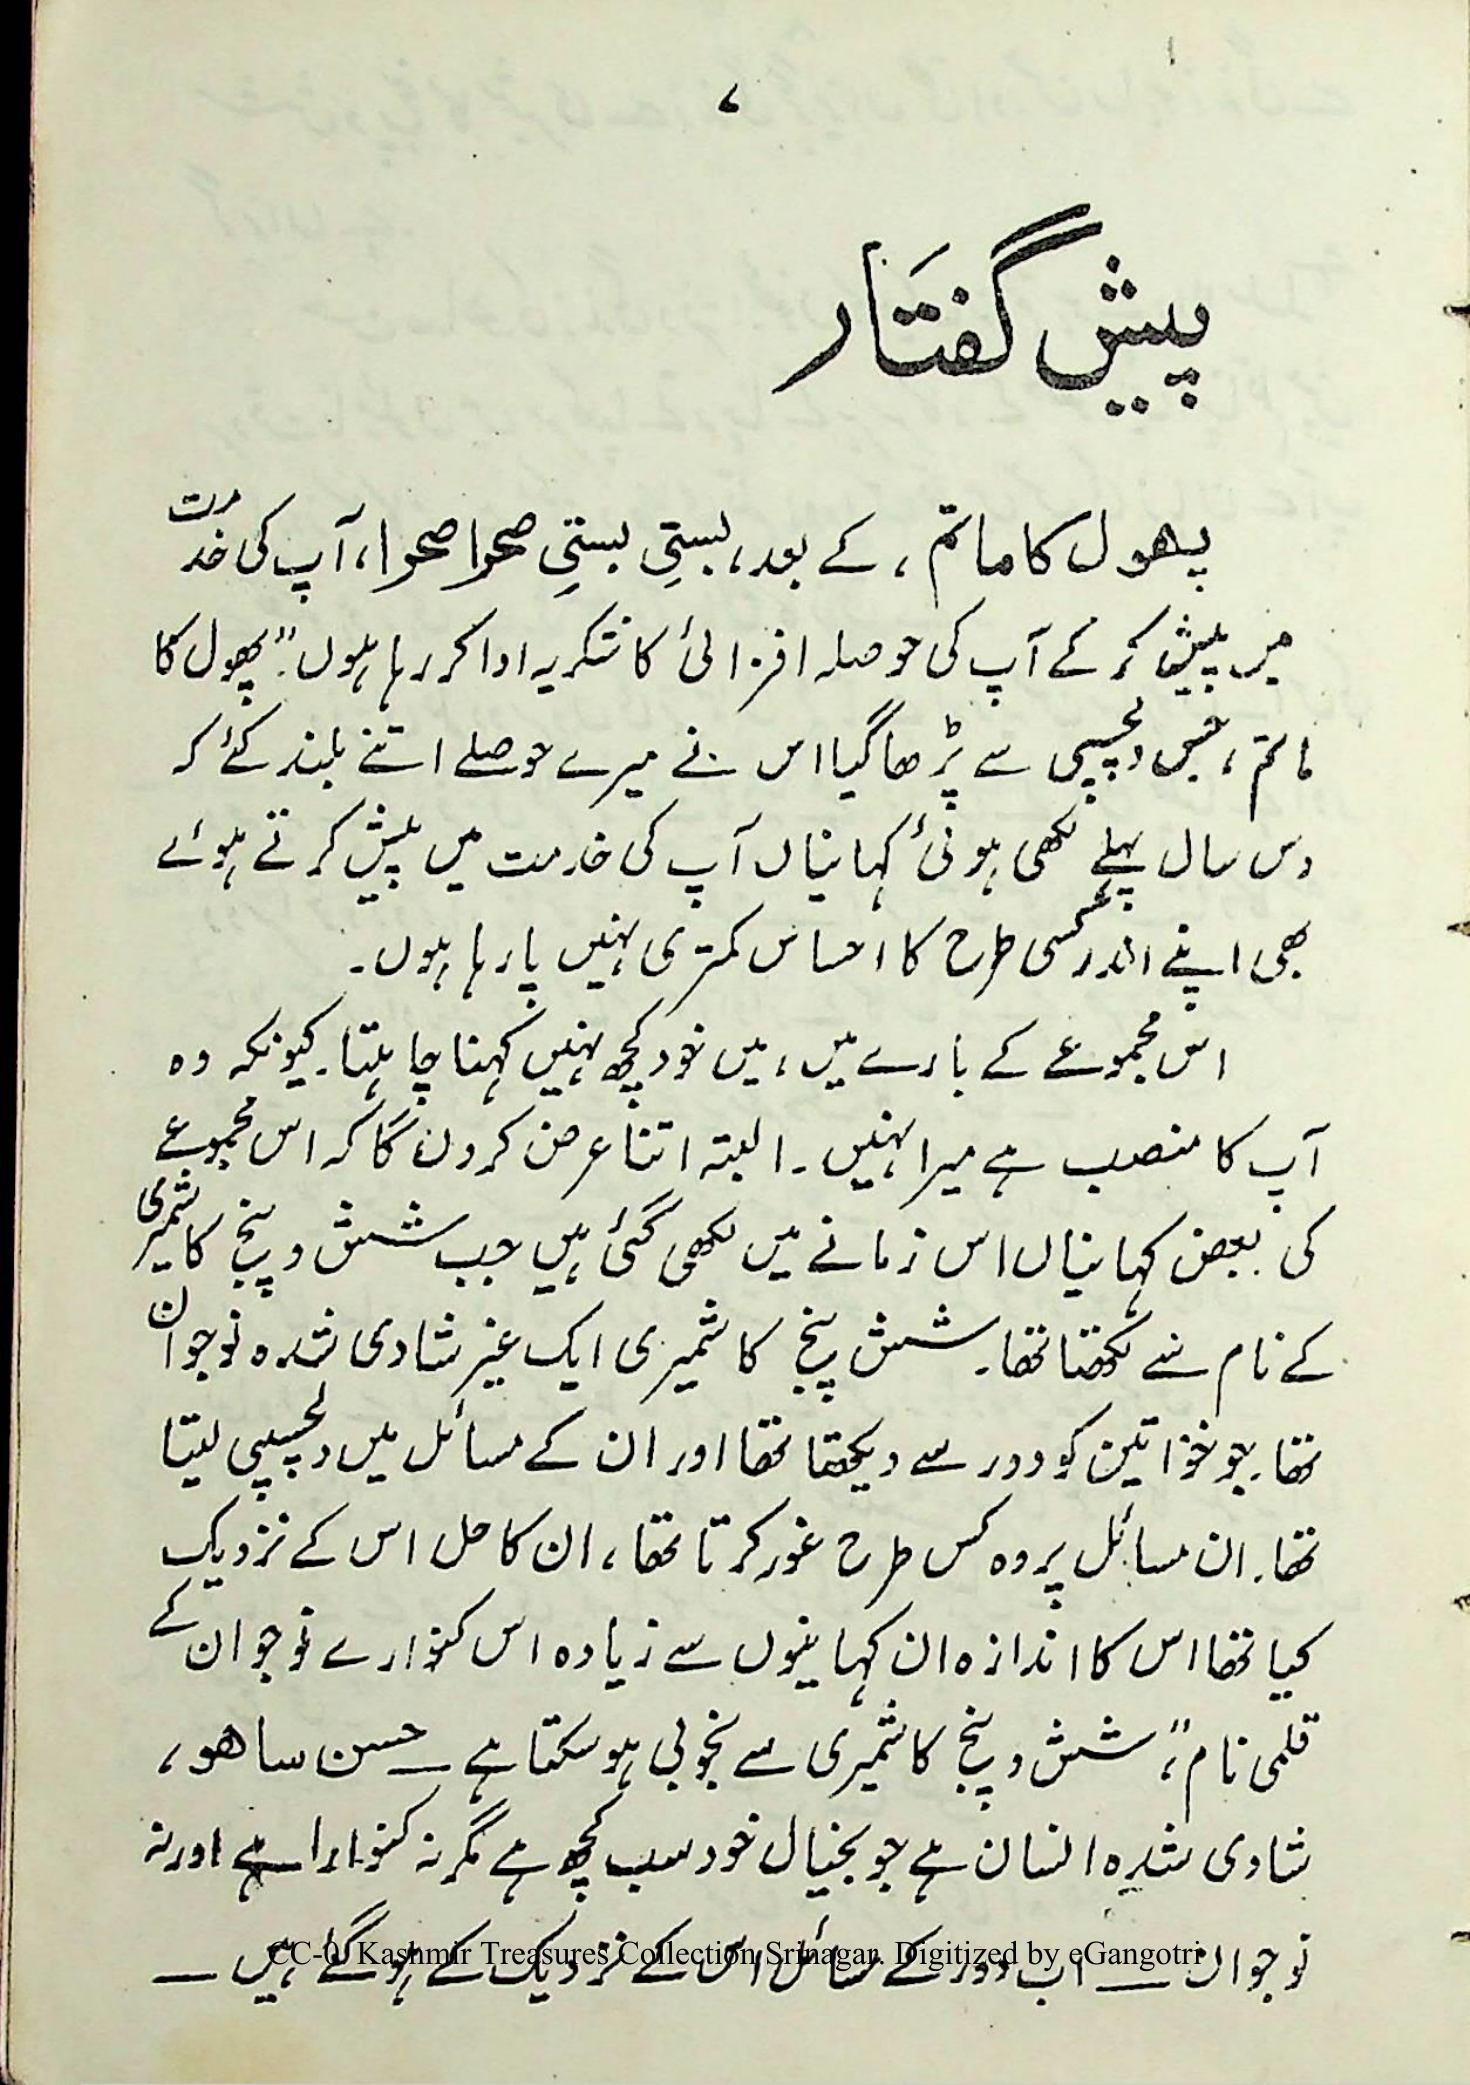 ۷
پیش گفتار
پھول کا ماتم، کے بعد، بستی بستی صحرا صحرا، آپ کی خدمت
میں پیش کر کے آپ کی حوصلہ افزائی کا شکریہ ادا کر رہا ہوں۔ "پھول کا
ماتم، جس دلچسپی سے پڑھا گیا اس نے میرے حوصلے اتنے بلند کئے کہ
دس سال پہلے لکھی ہوئی کہانیاں آپ کی خدمت میں پیش کرتے ہوئے
بھی اپنے اندر کسی طرح کا احساس کمتری نہیں پا رہا ہوں۔
اس مجموعے کے بارے میں، میں خود کچھ نہیں کہنا چاہتا۔ کیونکہ وہ
آپ کا منصب ہے میرا نہیں۔ البتہ اتنا عرض کروں گا کہ اس مجموعے
کی بعض کہانیاں اس زمانے میں لکھی گئی ہیں جب شش و پنج کاشمیری
کے نام سے لکھتا تھا۔ شش پنج کاشمیری ایک غیر شادی شدہ نوجوان
تھا۔ جو خواتین کو دور سے دیکھتا تھا اور ان کے مسائل میں دلچسپی لیتا
تھا۔ ان مسائل پر وہ کس طرح غور کرتا تھا، ان کا حل اس کے نزدیک
کیا تھا اس کا اندازہ ان کہانیوں سے زیادہ اس کنوارے نوجوان کے
قلمی نام "، شش و پنج کاشمیری سے بخوبی ہو سکتا ہے ــ حسن ساھو،
شادی شدہ انسان ہے جو بخیال خود سب کچھ ہے مگر نہ کنوارا ہے اور نہ
نوجوان ــ اب دور کے مسائل اس کے نزدیک کے ہو گئے ہیں ــ
CC-0. Kashmir Treasures Collection Srinagar. Digitized by eGangotri